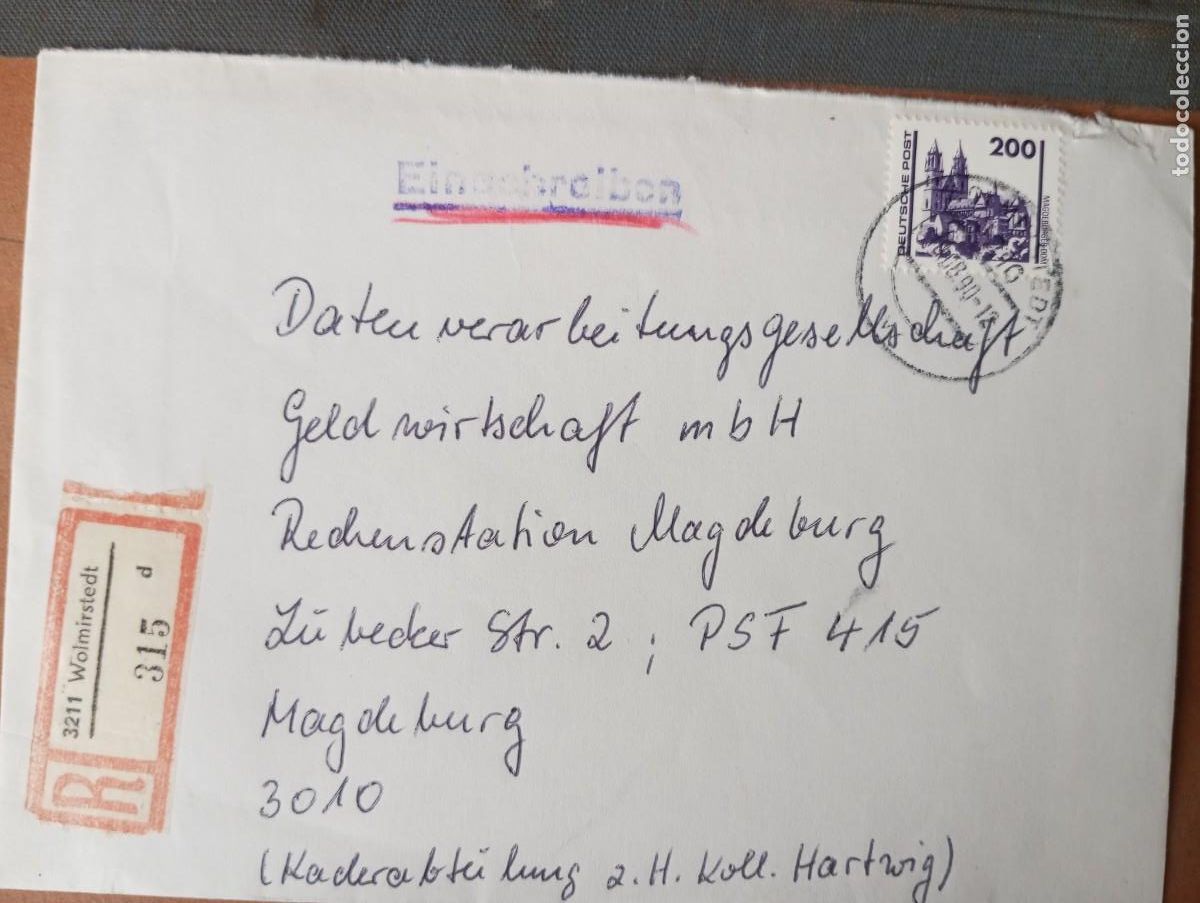 Einschreiben
DEUTSCHE POST
200
Datenverarbeitungsgesellschaft
Geldwirtschaft mbH
Rechenstation Magdeburg
Lübecker Str. 2 ; PSF 415
Magdeburg
3010
(Kaderabteilung z.H. Koll. Hartwig)
3211 Wolmirstedt
315 d
R
todocoleccion